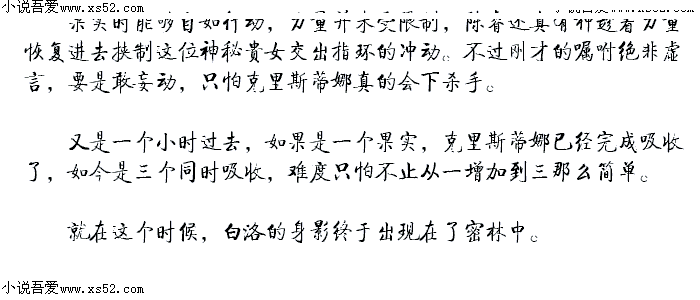 小说吾爱www.xs52.com
小说吾爱www.xs52.com
果实时能够自如行动，力量并未受限制，陈睿还具有种趁着力量
恢复进去挟制这位神秘贵女交出指环的冲动。不过刚才的嘱咐绝非虚
言，要是敢妄动，只怕克里斯蒂娜真的会下杀手。
又是一个小时过去，如果是一个果实，克里斯蒂娜已经完成吸收
了，如今是三个同时吸收，难度只怕不止从一增加到三那么简单。
就在这个时候，白洛的身影终于出现在了密林中。
小说吾爱www.xs52.com
小说吾爱www.xs52.com